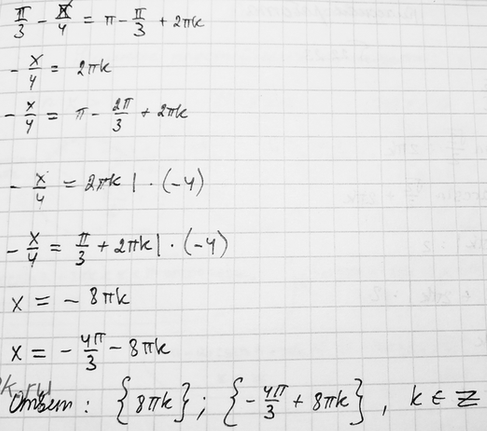 π/3 - x/4 = π - π/3 + 2πk
- x/4 = 2πk
- x/4 = π - 2π/3 + 2πk
- x/4 = 2πk | · (-4)
- x/4 = π/3 + 2πk | · (-4)
x = - 8πk
x = - 4π/3 - 8πk
Ответ : {8πk} ; {- 4π/3 + 8πk} , k ∈ Z